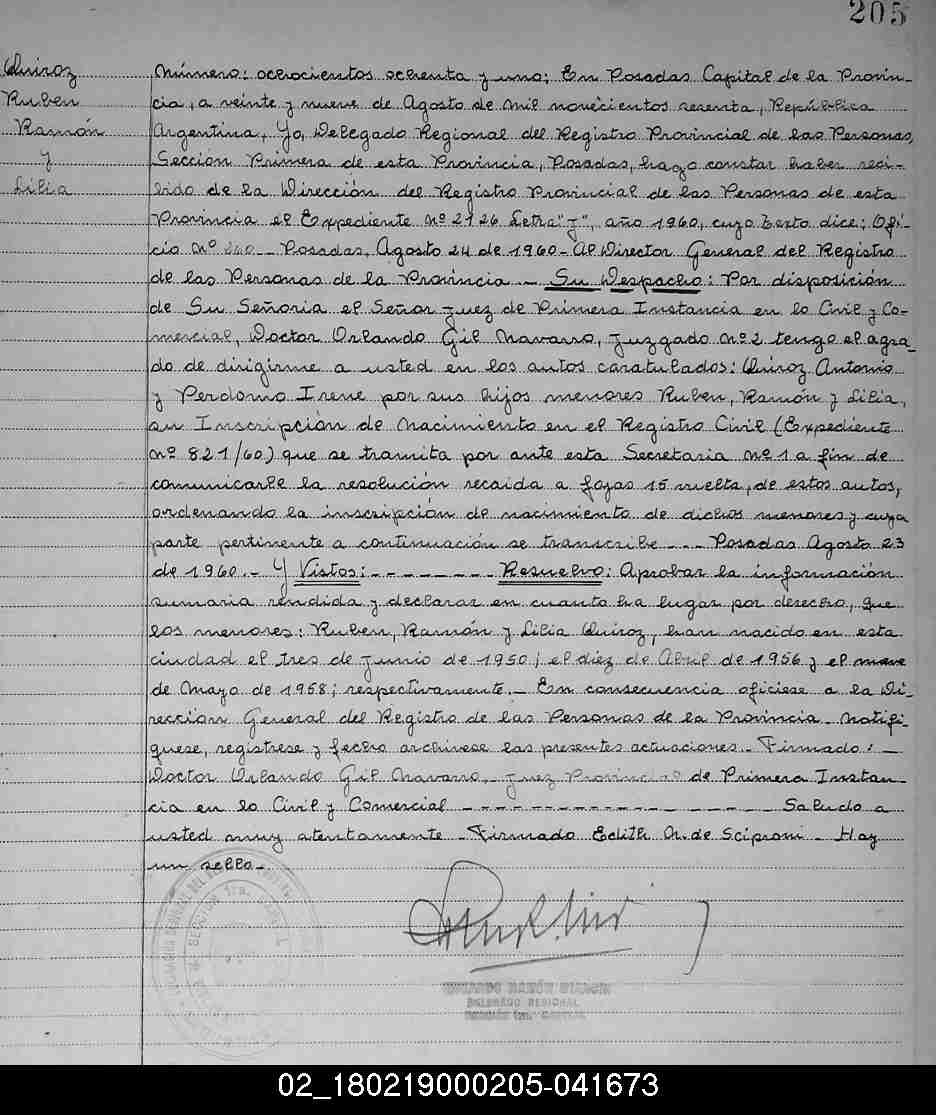 205
Quiroz
Ruben
Ramón
y
Lilia
Número: ochocientos ochenta y uno: En Posadas Capital de la Provin-
cia, a veinte y nueve de Agosto de mil novecientos sesenta, República
Argentina, Yo, Delegado Regional del Registro Provincial de las Personas,
Sección Primera de esta Provincia, Posadas, hago constar haber reci-
bido de la Dirección del Registro Provincial de las Personas de esta
Provincia el Expediente Nº 2126 Letra "J", año 1960, cuyo texto dice: Ofi-
cio Nº 860_ Posadas, Agosto 24 de 1960_ Al Director General del Registro
de las Personas de la Provincia _ Su Despacho: Por disposición
de Su Señoria el Señor Juez de Primera Instancia en lo Civil y Co-
mercial, Doctor Orlando Gil Navarro, Juzgado Nº 2 tengo el agra-
do de dirigirme a usted en los autos caratulados: Quiroz Antonio
y Perdomo Irene por sus hijos menores Ruben, Ramón y Lilia,
su Inscripción de Nacimiento en el Registro Civil (Expediente
Nº 821/60) que se tramita por ante esta Secretaria Nº 1 a fin de
comunicarle la resolución recaida a fojas 15 vuelta, de estos autos,
ordenando la inscripción de nacimiento de dichos menores y cuya
parte pertinente a continuación se transcribe _ _ _ Posadas Agosto 23
de 1960.- Y Vistos: - - - - - - - - Resuelvo: Aprobar la información
sumaria rendida y declarar en cuanto ha lugar por derecho, que
los menores: Ruben, Ramón y Lilia Quiroz, han nacido en esta
ciudad el tres de Junio de 1950; el diez de Abril de 1956 y el nueve
de Mayo de 1958; respectivamente._ En consecuencia oficiese a la Di-
rección General del Registro de las Personas de la Provincia_ Notifi-
quese, registrese y fecho archivese las presentes actuaciones_ Firmado: _
Doctor Orlando Gil Navarro_ Juez Provincial de Primera Instan-
cia en lo Civil y Comercial - - - - - - - - - - - - - - - - Saludo a
usted muy atentamente _ Firmado Edith N. de Sciproni _ Hay
un sello._
RAMÓN
DELEGADO REGIONAL
02_180219000205-041673